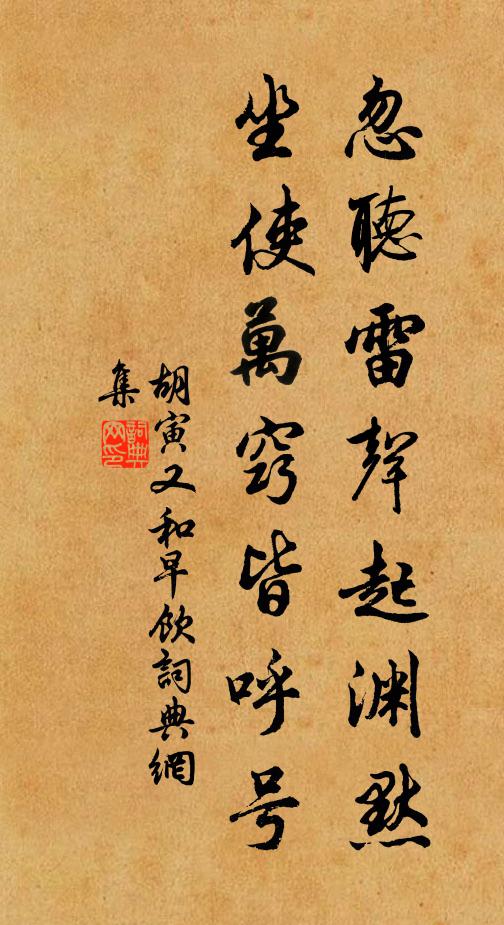 忽聽雷聲起渊默
坐使萬竅皆呼号
胡寅又和早飲詞典網
集
詞典网印